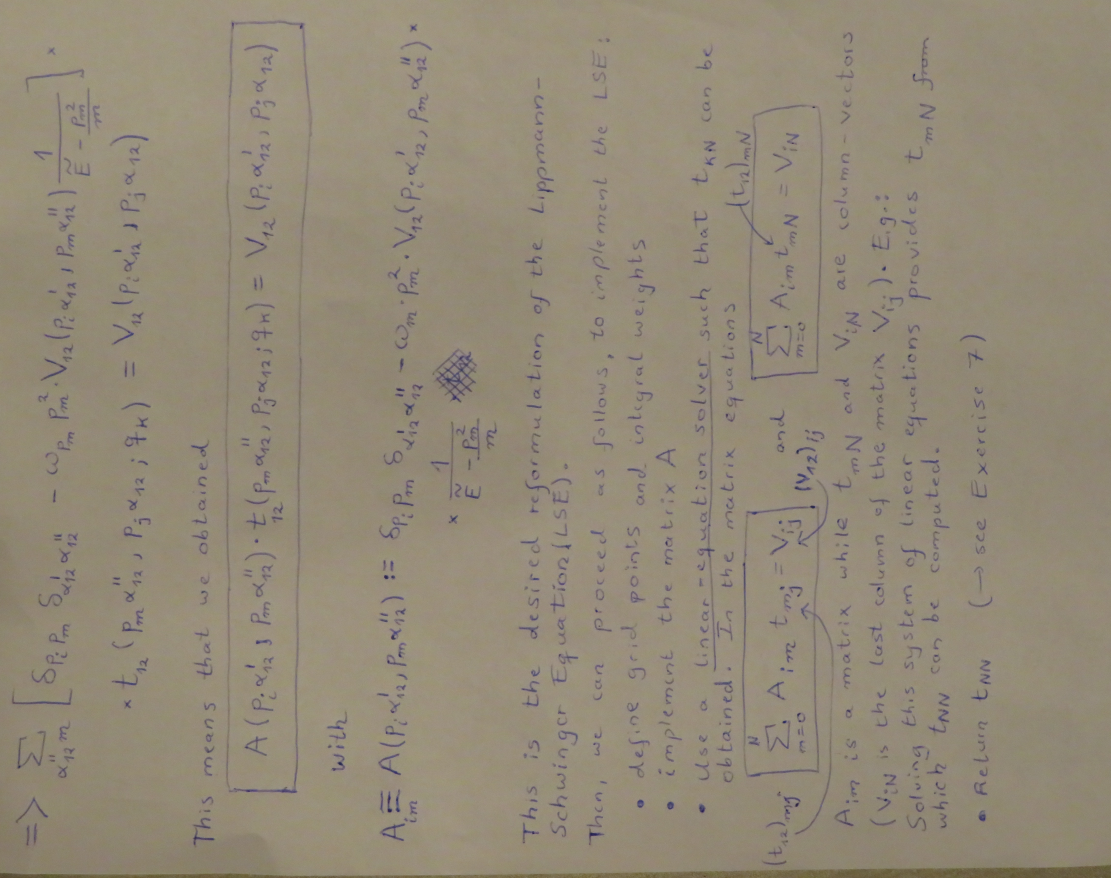 => ∑_{α''₁₂ m} [ δ_{p_i p_m} δ_{α'₁₂ α''₁₂} − ω_{p_m} p_m² · V₁₂(p_i α'₁₂, p_m α''₁₂) 1/(Ẽ − p_m²/m) ] ×
× t₁₂ (p_m α''₁₂, p_j α₁₂; q_k) = V₁₂ (p_i α'₁₂, p_j α₁₂)
This means that we obtained
A(p_i α'₁₂, p_m α''₁₂) · t₁₂(p_m α''₁₂, p_j α₁₂; q_k) = V₁₂ (p_i α'₁₂, p_j α₁₂)
with
A_{im} ≡ A(p_i α'₁₂, p_m α''₁₂) := δ_{p_i p_m} δ_{α'₁₂ α''₁₂} − ω_m · p_m² · V₁₂(p_i α'₁₂, p_m α''₁₂) ×
× 1/(Ẽ − p_m²/m)
This is the desired reformulation of the Lippmann-
Schwinger Equation (LSE).
Then, we can proceed as follows, to implement the LSE:
• define grid points and integral weights
• implement the matrix A
• Use a linear-equation solver such that t_{KN} can be
obtained. In the matrix equations (t₁₂)_{mN}
(t₁₂)_{mj} ∑_{m=0}^{N} A_{im} t_{mj} = V_{ij} (V₁₂)_{ij} and ∑_{m=0}^{N} A_{im} t_{mN} = V_{iN}
A_{im} is a matrix while t_{mN} and V_{iN} are column-vectors
(V_{iN} is the last column of the matrix V_{ij}). E.g.:
Solving this system of linear equations provides t_{mN} from
which t_{NN} can be computed.
• Return t_{NN} (→ see Exercise 7)